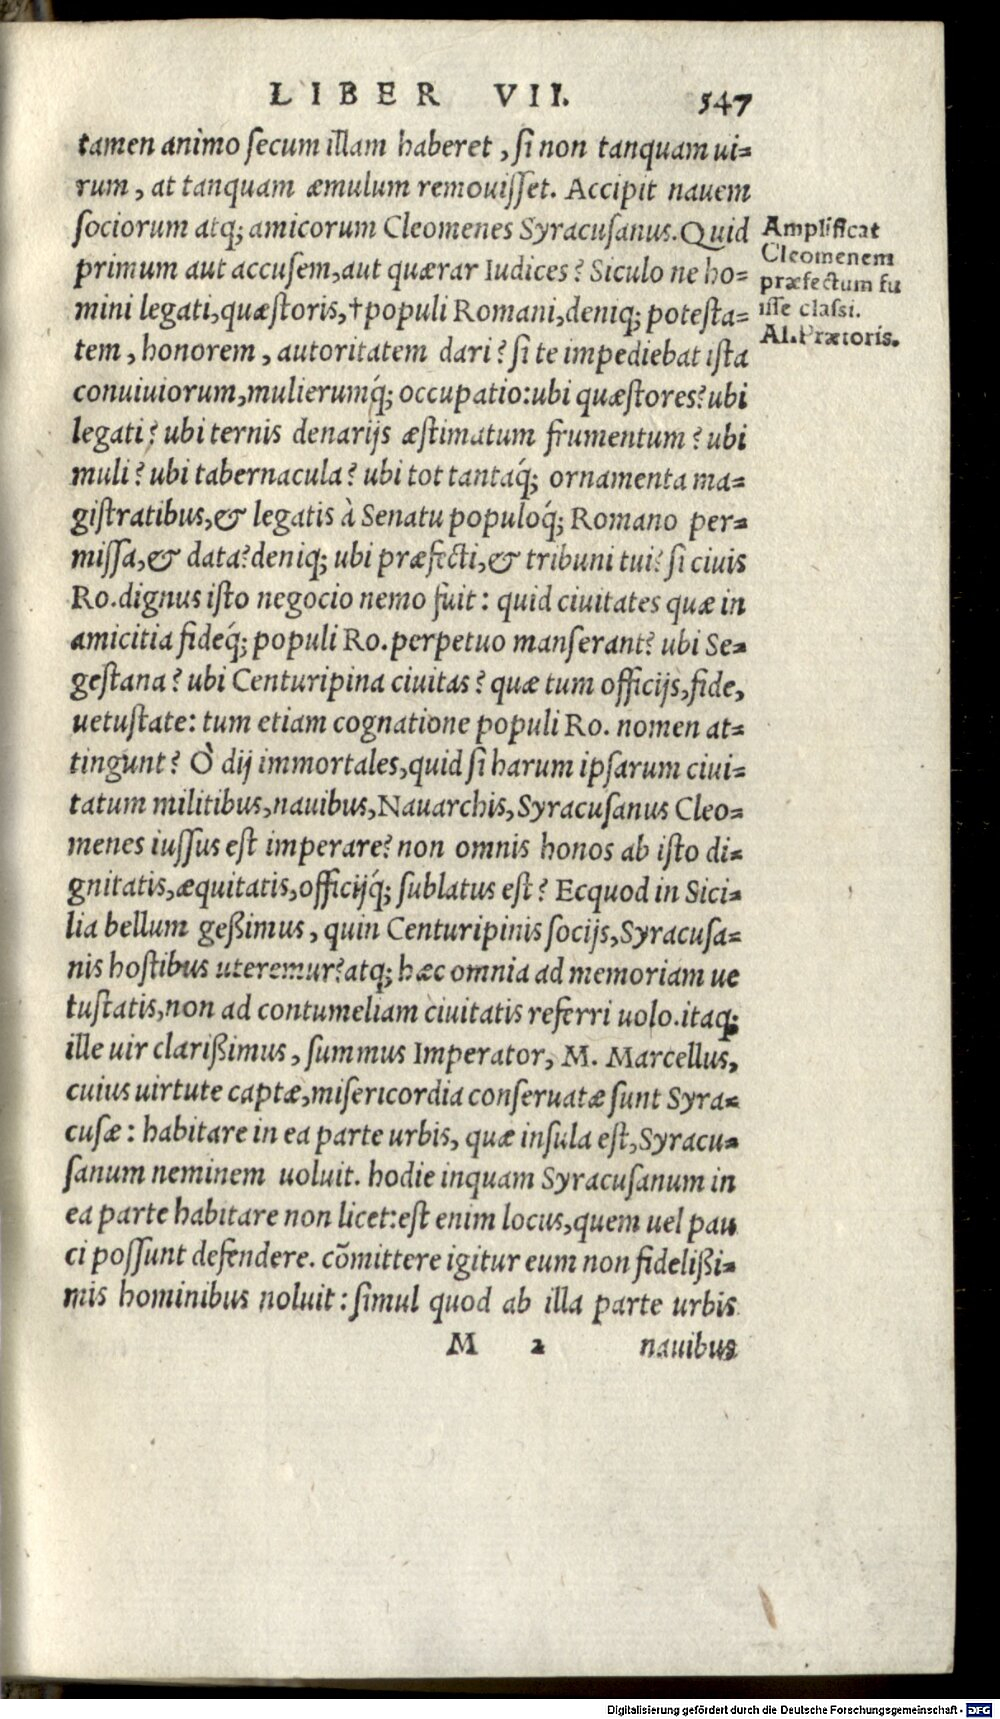 LIBER VII. 547
tamen animo secum illam haberet, si non tanquam ui=
rum, at tanquam æmulum remouisset. Accipit nauem
sociorum atq; amicorum Cleomenes Syracusanus. Quid
primum aut accusem, aut quærar Iudices? Siculo ne ho=
mini legati, quæstoris, † populi Romani, deniq; potesta=
tem, honorem, autoritatem dari? si te impediebat ista
conuiuiorum, mulierumq́; occupatio: ubi quæstores? ubi
legati? ubi ternis denarijs æstimatum frumentum? ubi
muli? ubi tabernacula? ubi tot tantaq́; ornamenta ma=
gistratibus, & legatis à Senatu populoq́; Romano per=
missa, & data? deniq; ubi præfecti, & tribuni tui? si ciuis
Ro. dignus isto negocio nemo fuit: quid ciuitates quæ in
amicitia fideq́; populi Ro. perpetuo manserant? ubi Se=
gestana? ubi Centuripina ciuitas? quæ tum officijs, fide,
uetustate: tum etiam cognatione populi Ro. nomen at=
tingunt? Ò dij immortales, quid si harum ipsarum ciui=
tatum militibus, nauibus, Nauarchis, Syracusanus Cleo=
menes iussus est imperare? non omnis honos ab isto di=
gnitatis, æquitatis, officijq́; sublatus est? Ecquod in Sici=
lia bellum geßimus, quin Centuripinis socijs, Syracusa=
nis hostibus uteremur? atq; hæc omnia ad memoriam ue
tustatis, non ad contumeliam ciuitatis referri uolo. itaq;
ille uir clarißimus, summus Imperator, M. Marcellus,
cuius uirtute captæ, misericordia conseruatæ sunt Syra=
cusæ: habitare in ea parte urbis, quæ insula est, Syracu=
sanum neminem uoluit. hodie inquam Syracusanum in
ea parte habitare non licet: est enim locus, quem uel pau
ci possunt defendere. cõmittere igitur eum non fidelißi=
mis hominibus noluit: simul quod ab illa parte urbis
M 2 nauibus
Amplificat
Cleomenem
præfectum fu
isse classi.
Al. Prætoris.
Digitalisierung gefördert durch die Deutsche Forschungsgemeinschaft - DFG